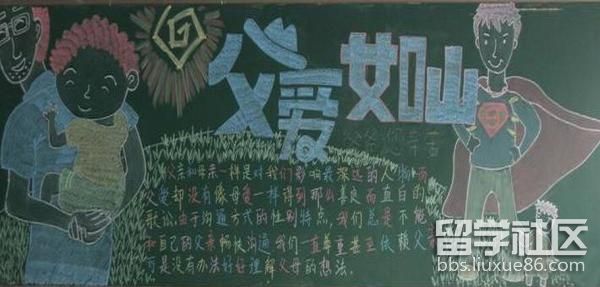 父爱如山
父亲和母亲一样是对我们影响最深远的人物而
父爱却没有像母爱一样得到那么善良而直白的
歌讼.由于沟通方式的性别特点,我们总是不能
和自己的父亲畅快沟通我们一直尊重甚至依赖父亲
可是没有办法好好理解父母的想法.
留学社区
bbs.liuxue86.com